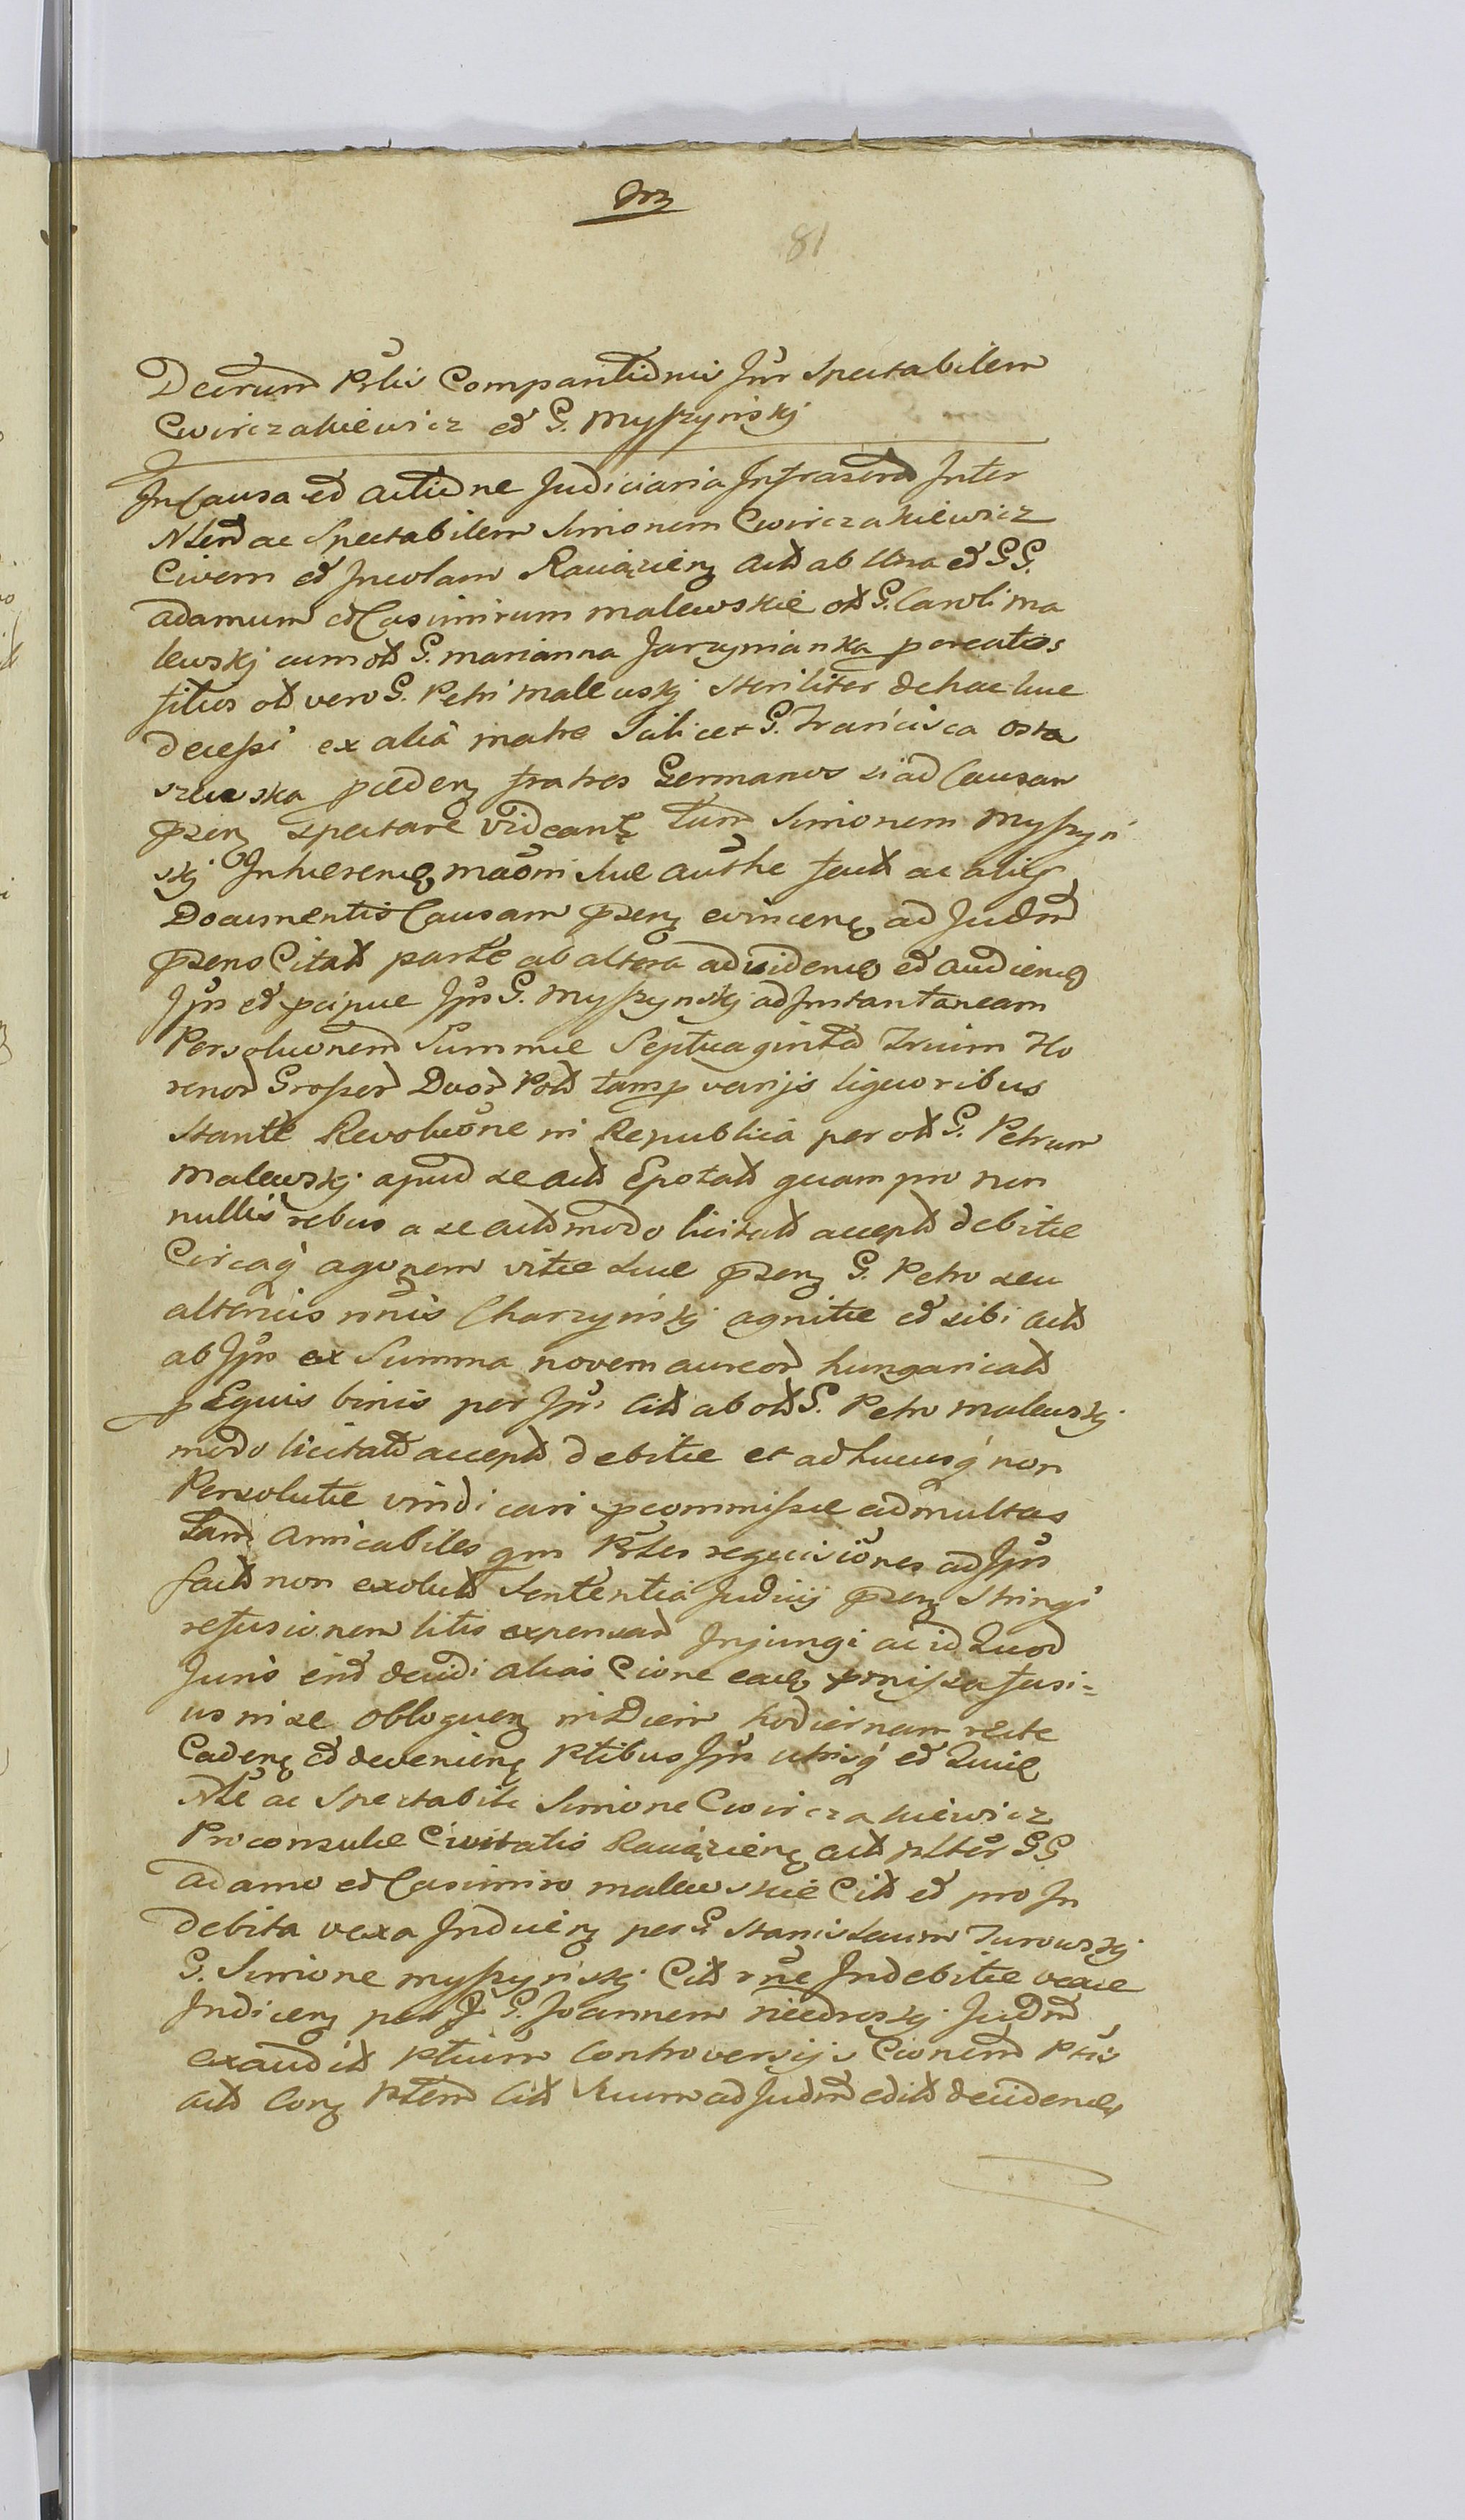 81
Decrum Prlis Comparitionis Inr Spectabilem
Cwirczakiewicz et G. Myszynskj
In Causa et actione Judiciaria Infrascrid Inter
Nlem ac Spectabilem Simonem Cwirczakiewicz
Civem et Incolam Raviązien act ab Una et GG.
adamum et Casimirum malewskie ott G. Caroli ma
lewskj cum ott G. marianna Jarzynianka pocreatos
filios ott vero G. Petri mallewskj steriliter de hac luce
decessi ex alia matre Scilicet G. Francisca osta
szewska fratres Germanos si ad Causam
pzen spectare videant tum Simonem Myszyń
skj Inhaeren maoni suae authe fact ac alijs
Documentis Causam pzen evincen ad Judm
pzens Citatt parte ab altera ad viden et audien
Ips et pcipue Ips G. Myszynskj ad Instantaneam
Persolutionem Summae Septuaginta Trium Flo
renor Grosser Duor Pott tam p varijs liquoribus
stante Revolutione in Republica per ott G. Petrum
Malewskj apud se act Epotatt quam pro non
nullis rebus a se act modo licitatt accept debitae
Circaq agonem vitae suae pzen G. Petro seu
alterius nnis Charzyńskj agnitae et sibi act
ab Ips ex Summa novem aureor hungaricatt
p Equis binis per Ips Citt ab ott G. Petro malewskj
modo licitatt accept debitae et adhucusq non
Persolutae vindicari pcommissae ad multas
tam amicabiles qm Ptles requisiones ad Ips
fact non exolutt Sententia Judicij pzen Stringi
refusionem litis expensar Injungi ac id Quod
Juris erit decidi alias Cione ea pmissa fusi=
us in se obloquen in Diem hodiernam recte
Caden et devenien Ptibus Ips utrisq et Qui
Nle ac Spectabili Simone Cwirczakiewicz
Proconsule Civitatis Raviązien act GG
adamo et Casimiro malewskie Citt et pro In
debita vexa Inducien per G Stanislaum Turowskj
G. Simone myszyńskj Citt rne Indebitae vexae
Indicen per G. Joannem niedroskj Judm
exauditt Ptium Controversijs Cionem Ptis
act Con Ptem Citt Suum ad Judm editt deciden